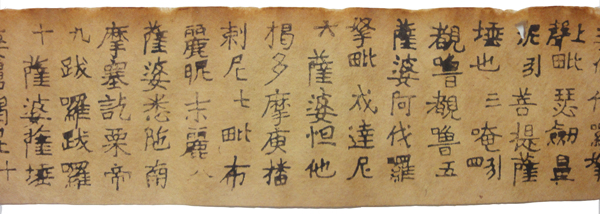 上聲毗瑟劒曼
泥引菩提薩
埵也三唵引四
覩嚕覩嚕五
薩婆阿伐羅
拏毗戍達尼
六薩婆怛他
揭多摩庾播
剌尼七毗布
麗昵末麗八
薩婆悉陁南
摩塞訖栗帝
九跋囉跋囉
十薩婆薩埵